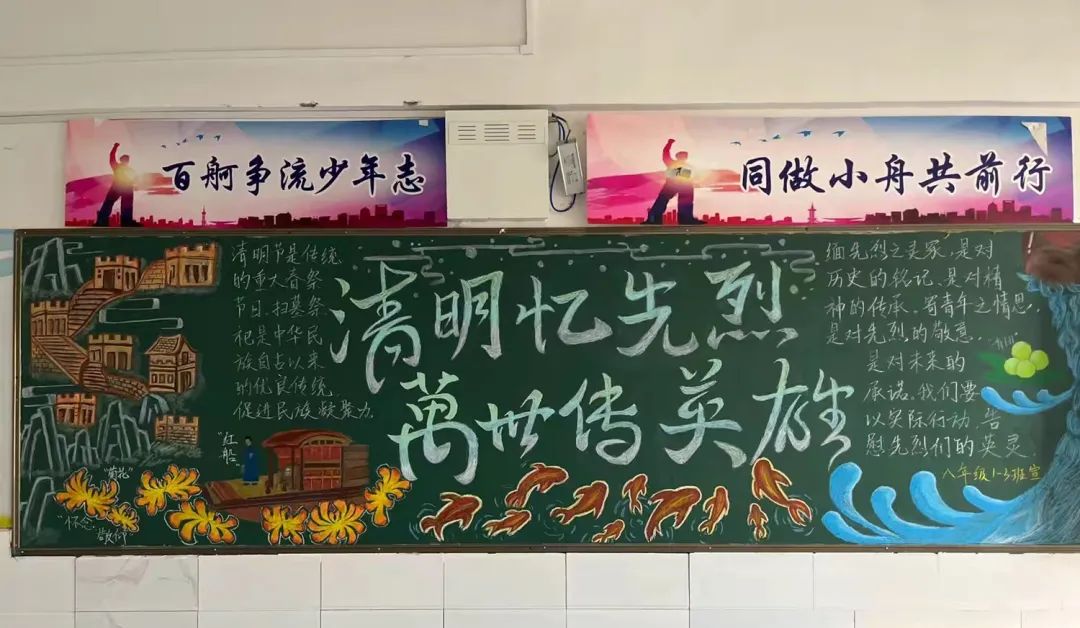 百舸争流少年志
同做小舟共前行
清明节是传统
的重大春祭
节日,扫墓祭
祀是中华民
族自古以来
的优良传统,
促进民族凝聚力.
清明忆先烈
萬世传英雄
缅先烈之灵冢,是对
历史的铭记,是对精
神的传承。寄青年之情思,
是对先烈的敬意,
是对未来的
承诺。我们要
以实际行动,告
慰先烈们的英灵.
八年级1-3班宣
"红船"
"菊花"
"怀念
敬仰"